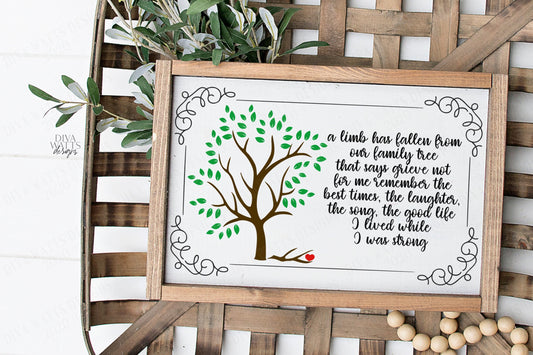 DIVA
WALLS
designs
a limb has fallen from
our family tree
that says grieve not
for me remember the
best times, the laughter,
the song, the good life
I lived while
I was strong